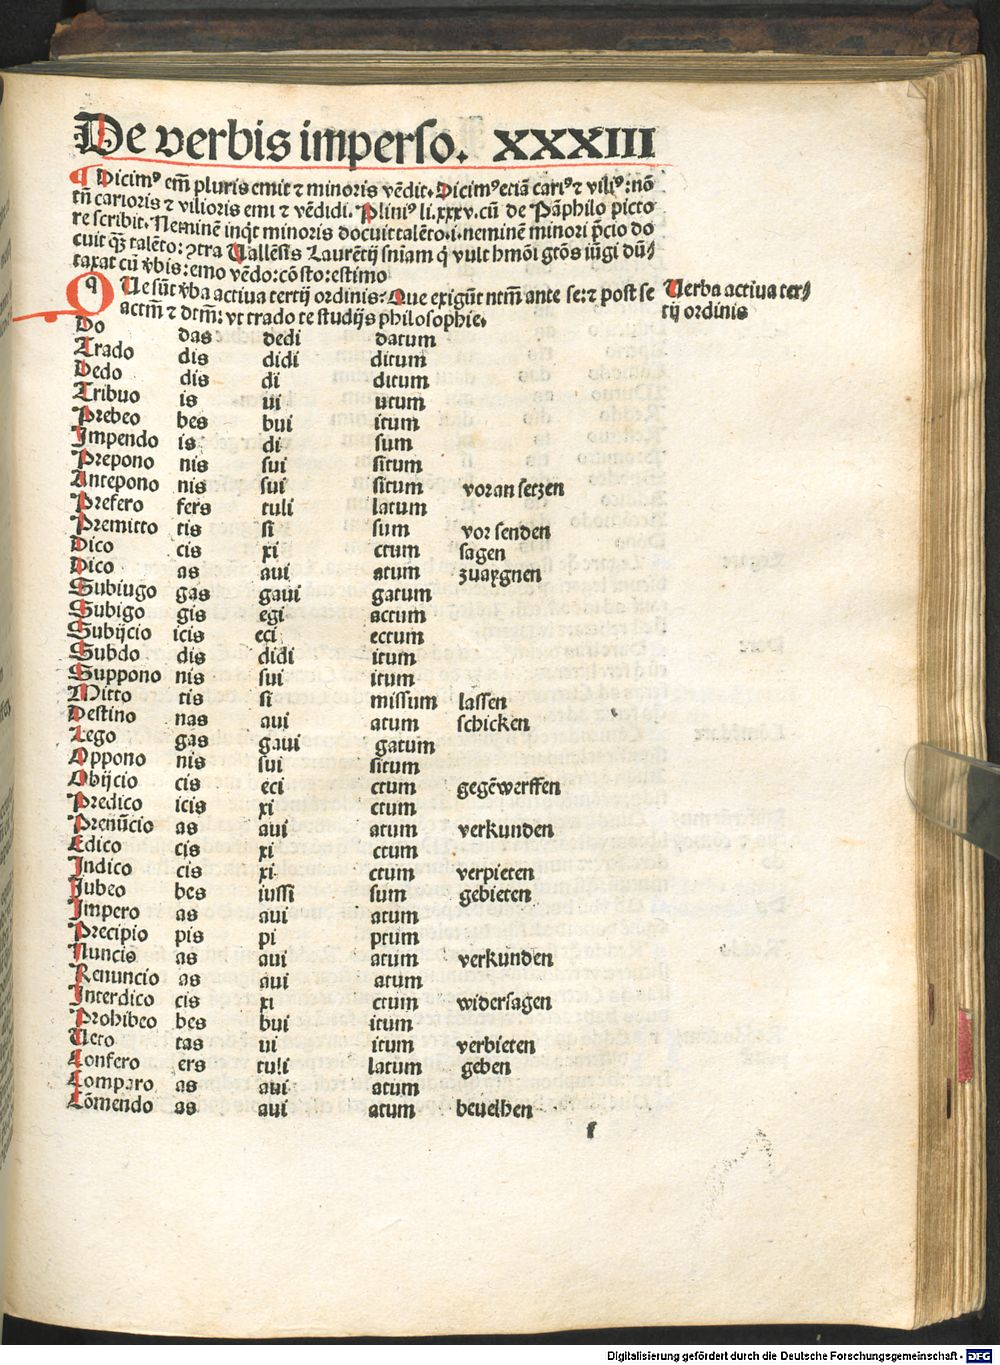 De verbis imperso. XXXIII
¶ Dicimꝰ em̄ pluris emit ⁊ minoris vēdit. Dicimꝰ eciā cariꝰ ⁊ viliꝰ: nō
tn̄ carioris ⁊ vilioris emi ⁊ vēdidi. Pliniꝰ li. xxxv. cū de Pāphilo picto
re scribit. Neminē inqt minoris docuit talēto .i. neminē minori p̄cio do
cuit qȝ talēto: ꝯtra Vallēsis Laurētij sniam q̇ vult hmōi gtōs iūgi dū⸗
taxat cū v̄bis: emo vēdo: cōsto: estimo
QUe sūt v̄ba actiua tertij ordinis? Que exigūt ntm̄ ante se: ⁊ post se
actm̄ ⁊ dtm̄: vt trado te studijs philosophie.
Verba actiua ter⸗
tij ordinis
Do das dedi datum
Trado dis didi ditum
Dedo dis di ditum
Tribuo is ui utum
Prebeo bes bui itum
Impendo is di sum
Prepono nis sui situm
Antepono nis sui situm voran setzen
Prefero fers tuli latum
Premitto tis si sum vor senden
Dico cis xi ctum sagen
Dico as aui atum zuaygnen
Subiugo gas gaui gatum
Subigo gis egi actum
Subijcio icis eci ectum
Subdo dis didi itum
Suppono nis sui itum
Mitto tis si missum lassen
Destino nas aui atum schicken
Lego gas gaui gatum
Oppono nis sui situm
Obijcio cis eci ctum gegēwerffen
Predico icis xi ctum
Prenūcio as aui atum verkunden
Edico cis xi ctum
Indico cis xi ctum verpieten
Jubeo bes iussi sum gebieten
Impero as aui atum
Precipio pis pi ptum
Nuncis as aui atum verkunden
Renuncio as aui atum
Interdico cis xi ctum widersagen
Prohibeo bes bui itum
Veto tas ui itum verbieten
Confero ers tuli latum geben
Comparo as aui atum
Cōmendo as aui atum beuelhen
f
Digitalisierung gefördert durch die Deutsche Forschungsgemeinschaft - DFG